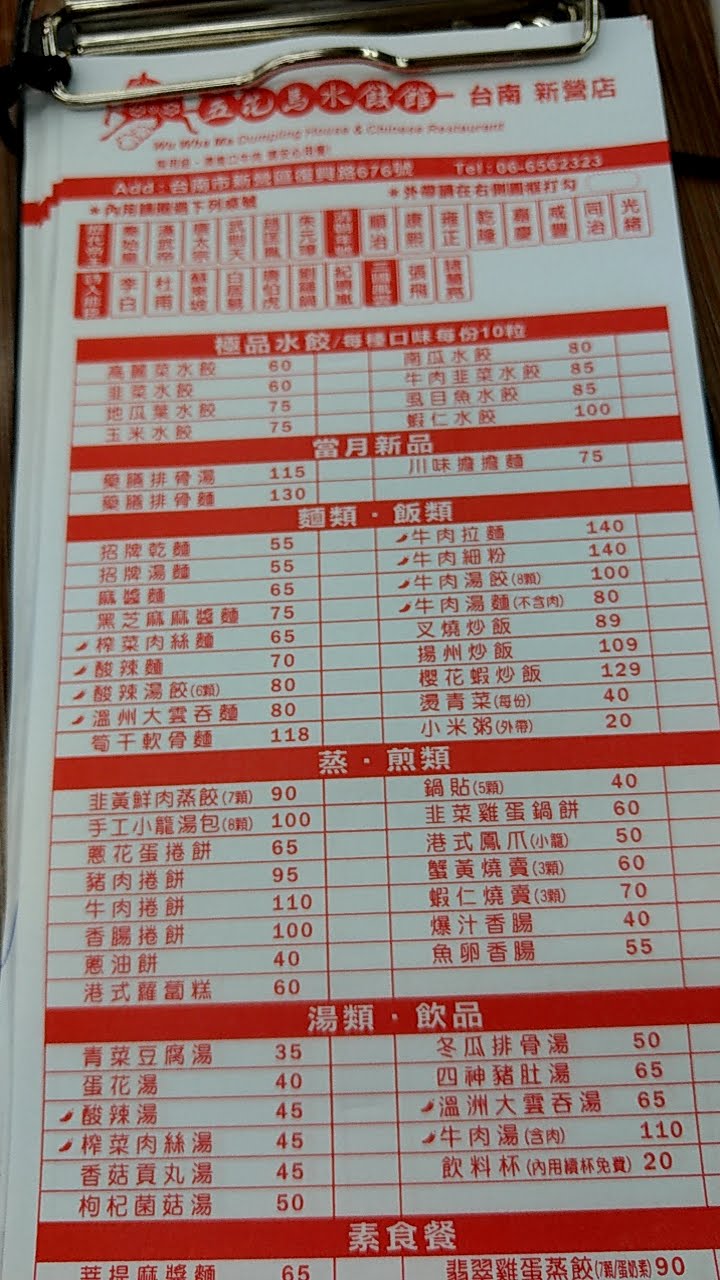 五花馬水餃館 台南 新營店
Wu Wha Ma Dumpling House & Chinese Restaurant
Add:台南市新營區復興路676號 Tel:06-6562323
*內用請圈選下列桌號 *外帶請在右側圓框打勾
秦始皇 漢武帝 唐太宗 武則天 趙匡胤 朱元璋 順治 康熙 雍正 乾隆 嘉慶 咸豐 同治 光緒
李白 杜甫 蘇東坡 白居易 唐伯虎 劉羅鍋 紀曉嵐 張飛 諸葛亮
極品水餃/每種口味每份10粒
高麗菜水餃 60 南瓜水餃 80
韭菜水餃 60 牛肉韭菜水餃 85
地瓜葉水餃 75 虱目魚水餃 85
玉米水餃 75 蝦仁水餃 100
當月新品
藥膳排骨湯 115 川味擔擔麵 75
藥膳排骨麵 130
麵類・飯類
招牌乾麵 55 牛肉拉麵 140
招牌湯麵 55 牛肉細粉 140
麻醬麵 65 牛肉湯餃(8顆) 100
黑芝麻麻醬麵 75 牛肉湯麵(不含肉) 80
榨菜肉絲麵 65 叉燒炒飯 89
酸辣麵 70 揚州炒飯 109
酸辣湯餃(6顆) 80 櫻花蝦炒飯 129
溫州大雲吞麵 80 燙青菜(每份) 40
筍干軟骨麵 118 小米粥(外帶) 20
蒸・煎類
韭黃鮮肉蒸餃(7顆) 90 鍋貼(5顆) 40
手工小籠湯包(8顆) 100 韭菜雞蛋鍋餅 60
蔥花蛋捲餅 65 港式鳳爪(小龍) 50
豬肉捲餅 95 蟹黃燒賣(3顆) 60
牛肉捲餅 110 蝦仁燒賣(3顆) 70
香腸捲餅 100 爆汁香腸 40
蔥油餅 40 魚卵香腸 55
港式蘿蔔糕 60
湯類・飲品
青菜豆腐湯 35 冬瓜排骨湯 50
蛋花湯 40 四神豬肚湯 65
酸辣湯 45 溫洲大雲吞湯 65
榨菜肉絲湯 45 牛肉湯(含肉) 110
香菇貢丸湯 45 飲料杯(內用續杯免費) 20
枸杞菌菇湯 50
素食餐
菩提麻醬麵 65 翡翠雞蛋蒸餃(7顆/蛋奶素) 90